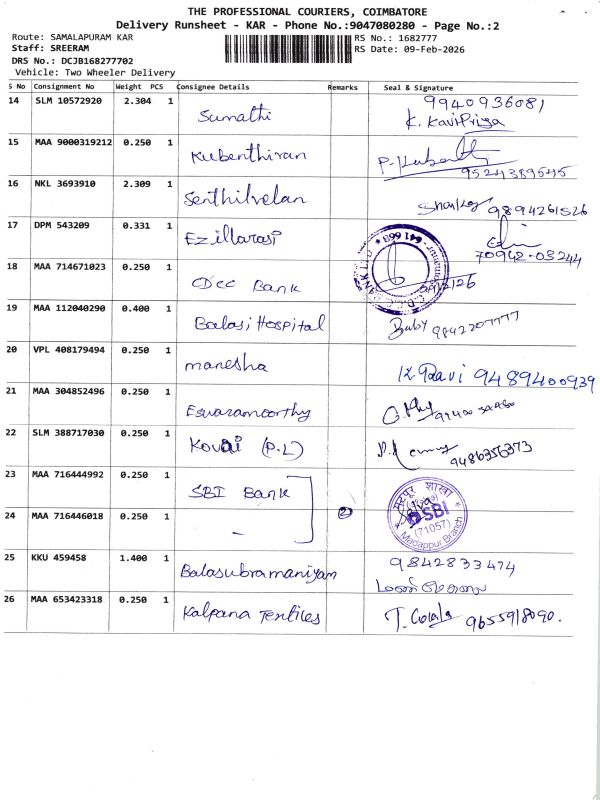 THE PROFESSIONAL COURIERS, COIMBATORE
Delivery Runsheet - KAR - Phone No.:9047080280 - Page No.:2
Route: SAMALAPURAM KAR
RS No.: 1682777
Staff: SREERAM
RS Date: 09-Feb-2026
DRS No.: DCJB168277702
Vehicle: Two Wheeler Delivery
S No Consignment No Weight PCS Consignee Details Remarks Seal & Signature
14 SLM 10572920 2.304 1 Sumathi 9940936081
K. KaviPriya
15 MAA 9000319212 0.250 1 Kubenthiran
9524389545
16 NKL 3693910 2.309 1 Senthilvelan
9894261526
17 DPM 543209 0.331 1 Ezillarasi
70942-03244
18 MAA 714671023 0.250 1 CDCC Bank
19 MAA 112040290 0.400 1 Balaji Hospital Baby 9842207777
20 VPL 408179494 0.250 1 manesha
K. Ravi 9489400939
21 MAA 304852496 0.250 1 Eswaramoorthy
22 SLM 388717030 0.250 1 Kovai (P.L)
9486356373
23 MAA 716444992 0.250 1 SBI Bank
शाखा
SBI
(71057)
Madappur Branch
24 MAA 716446018 0.250 1 - 2
25 KKU 459458 1.400 1 Balasubramaniyam 9842833474
26 MAA 653423318 0.250 1 Kalpana Textiles 9655918090.